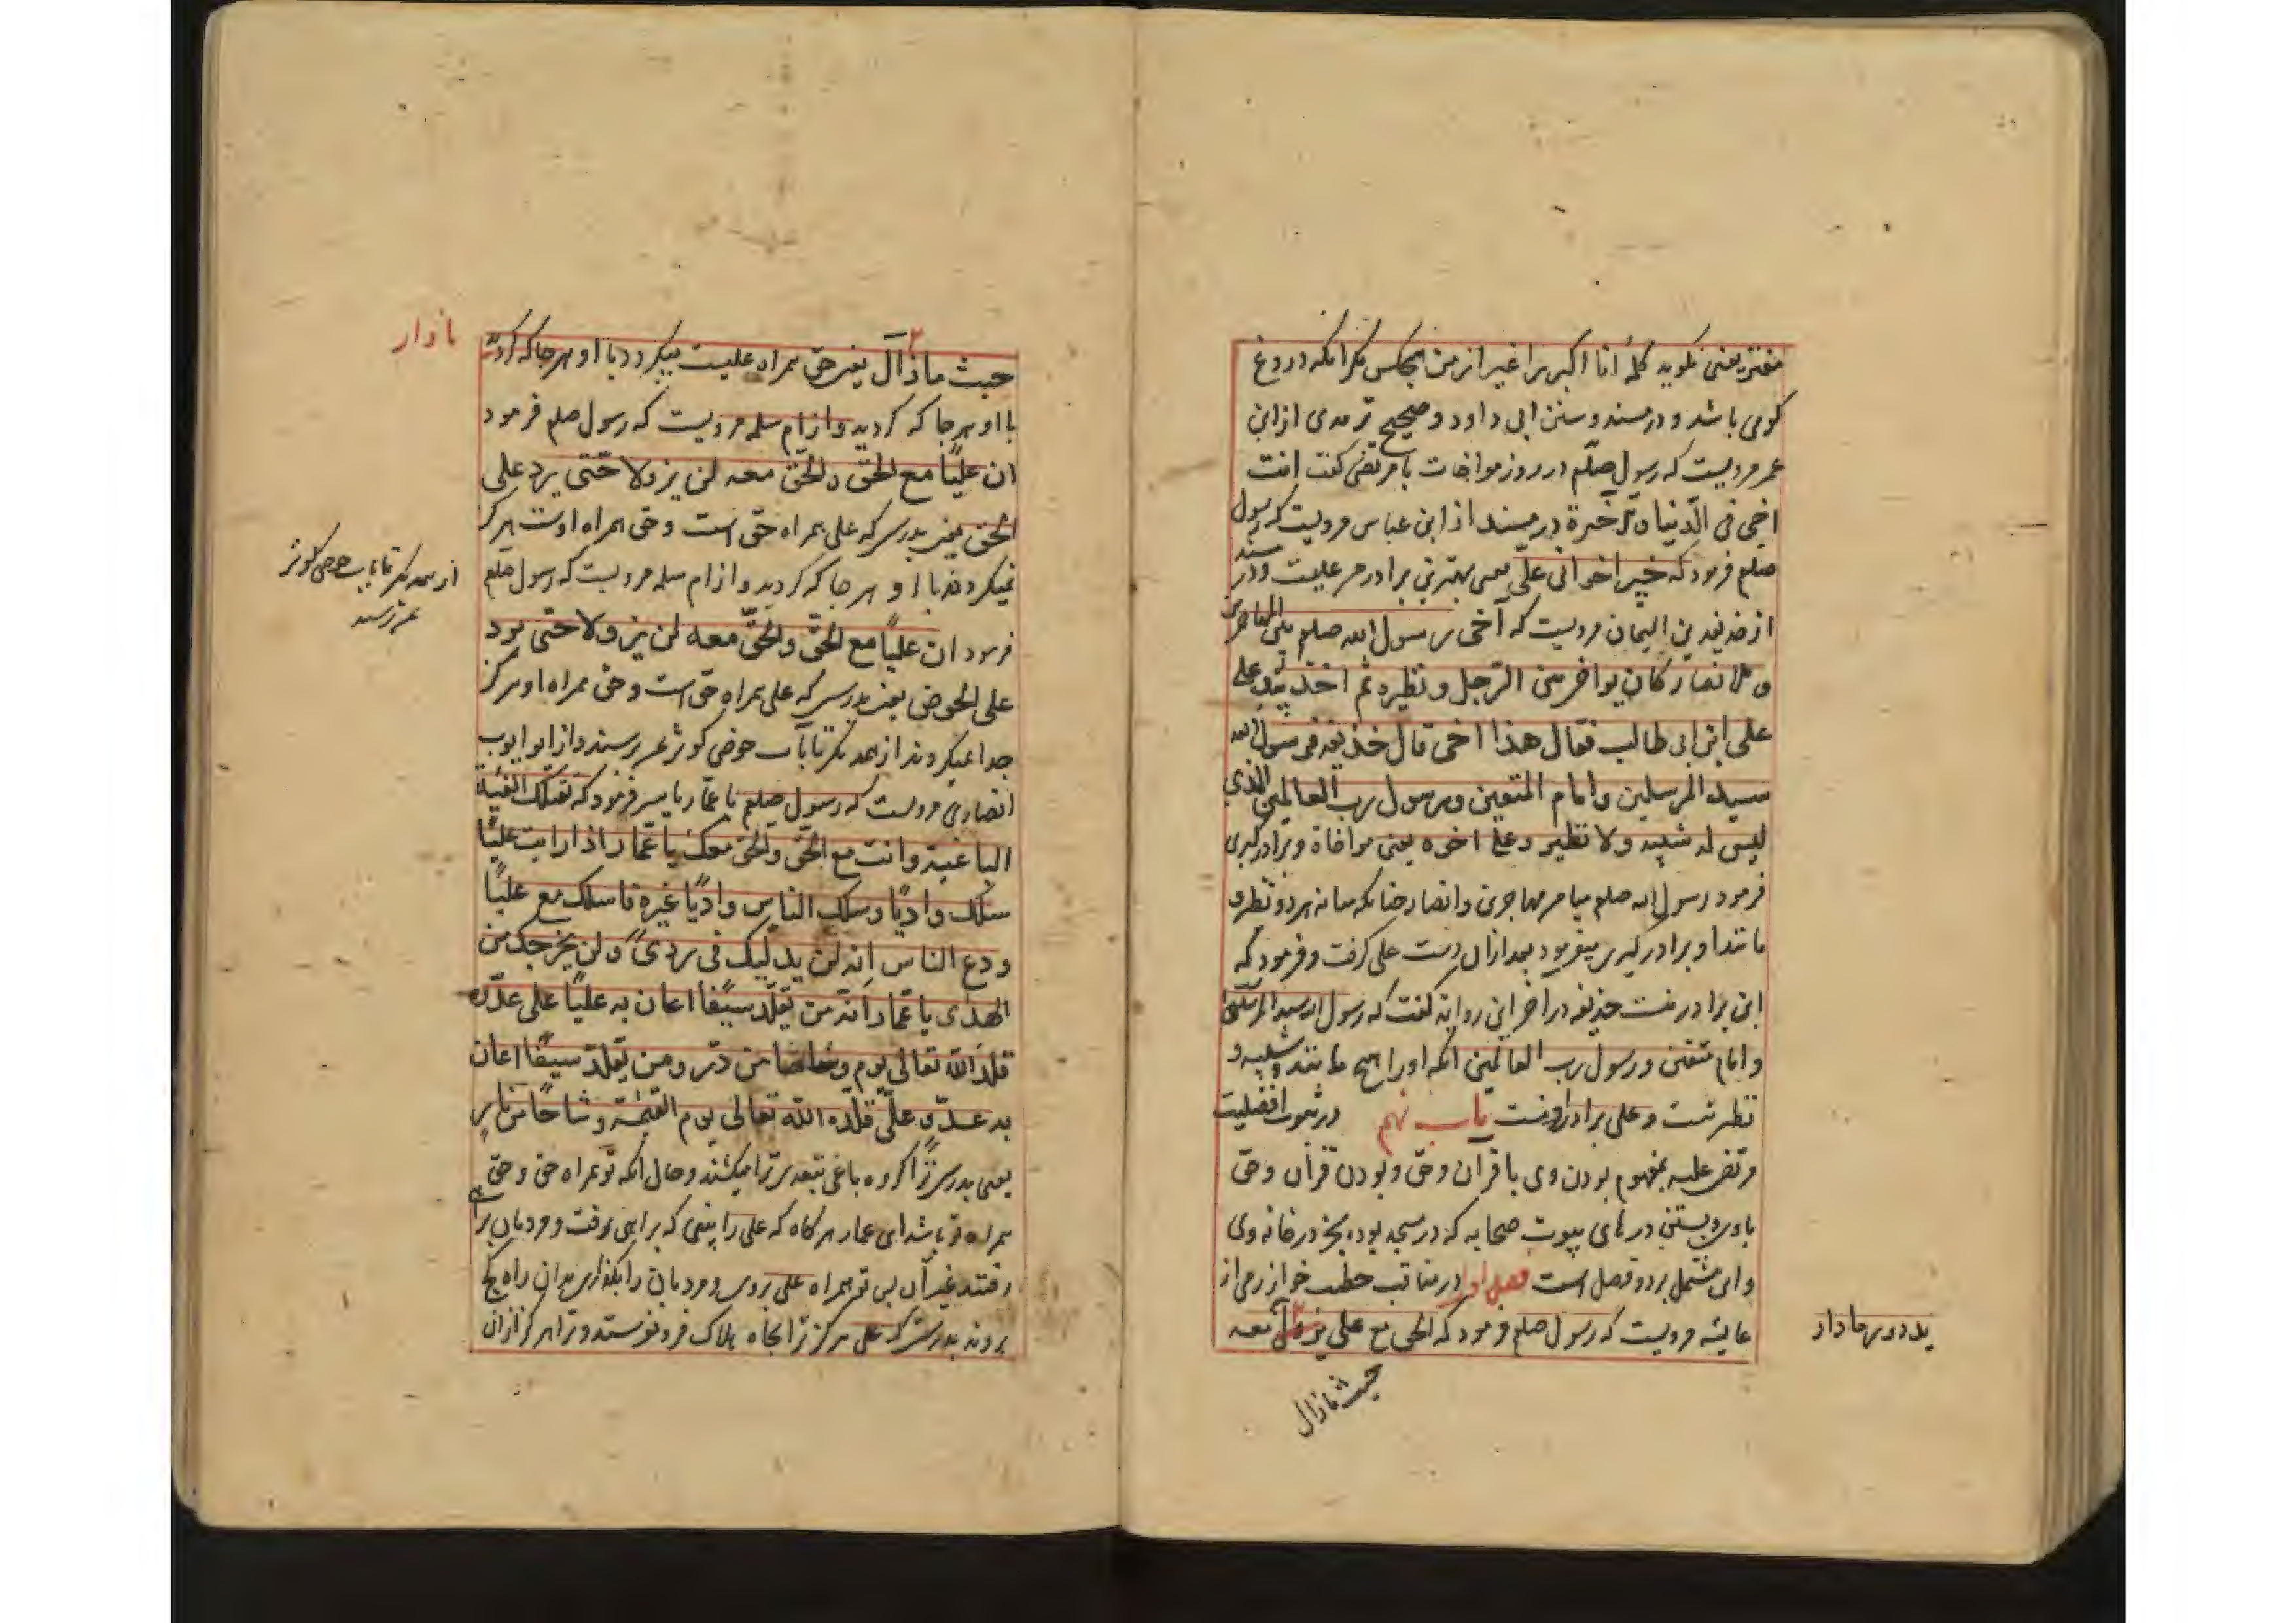 مفتر یعنی نگوید کلمهٔ انا اکبر را غیر از من هیچکس مگر انکه دروغ
کوی باشد و در مسند و سنن ابی داود و صحیح ترمدی از ابن
عمر مرویست که رسول صلّم در روز مواخات با مرتضی کفت انت
اخی فی الدّنیا والآخرة در مسند از ابن عباس مرویست که رسول
صلعم فرمود که خیر اخوانی علیّ یعنی بهترین برادر من علیست و در مسند
از حذیفه بن الیمان مرویست که آخی رسول الله صلعم بین المهاجرین
والانصار کان یواخر بین الرّجل و نظیره ثم اخذ بید علی
علی ابن ابی طالب فقال هذا اخی قال حذیفه فرسول الله
سید المرسلین وامام المتقین ورسول رب العالمین الذی
لیس له شبیه ولا نظیر وعلی اخوه یعنی مواخاة و برادرکیری
فرمود رسول الله صلعم میا مر مهاجرین وانصار چنانکه میانه هر دو نظرو
مانند او برادرکیری میفرمود بعد ازان دست علی کرفت و فرمود که
این برادر منست حذیفه در اخر این روایه کفت که رسول الله سید المرسلین
وامام متقین و رسول رب العالمین انکه او را هیچ مانند و شبیه و
نظیر نیست و علی برادر اوست باب نهم در ثبوت افضلیت
مرتضی علیه بمفهوم بودن وی با قرآن و حق و بودن قرآن و حق
باوی و بستن در های بیوت صحابه که در مسجد بود بجز در خانه وی
و این مشتمل بر دو فصل است فصل اول در مناقب خطیب خوارزمی از
عایشه مرویست که رسول صلعم فرمود که الحق مع علی یزول معه
حیث ماذال
حیث ماذآل یعنی حق همراه علیست میکردد با او هر جا که کردد
با او هر جا که کردید وازام سلمه مرویست که رسول صلعم فرمود
ان علیًا مع الحق والحق معه لن یزولا حتی یرد علی
الحق یعنی بدرستی که علی همراه حق است و حق همراه اوست هرکز
نمیکردند با او هر جا که کردید وازام سلمه مرویست که رسول صلعم
فرمود ان علیًا مع الحق والحق معه لن یزولا حتی یرد
علی الحوض یعنی بدرستی که علی همراه حق است و حق همراه او هرکز
جدا نمیکردند از همدیکر تا باب حوض کوثر بمن برسند واز ابو ایوب
انصاری مرویست که رسول صلعم با عمّار یاسر فرمود که تقتلک الفئة
الباغیة وانت مع الحق والحق معک یا عمّار اذا رایت علیًا
سلک وادیًا وسلک الناس وادیًا غیره فاسلک مع علیًا
ودع الناس انه لن یدلیک فی ردی ولن یخرجک من
الهدی یا عمّار انه من تقلّد سیفا اعان به علیًا علی عدّوه
قلد الله تعالی یوم وشاحا من درّ ومن تقلّد سیفًا اعان
به عدوّ علیّ قلّده الله تعالی یوم القیمة وشاحًا من نار
یعنی بدرستی ترا کروه باغی بتعدی ترا میکشند و حال انکه تو همراه حق و حق
همراه تو باشد ای عمار هرکاه که علی را بینی که براهی رفت و مردمان براه
رفتند غیر آن پس تو همراه علی بروی و مردمان را بکذاری بدان راه کج
بروند بدرستیکه علی هرکز ترا بچاه هلاک فرو نفرستد و ترا هرکز ازان